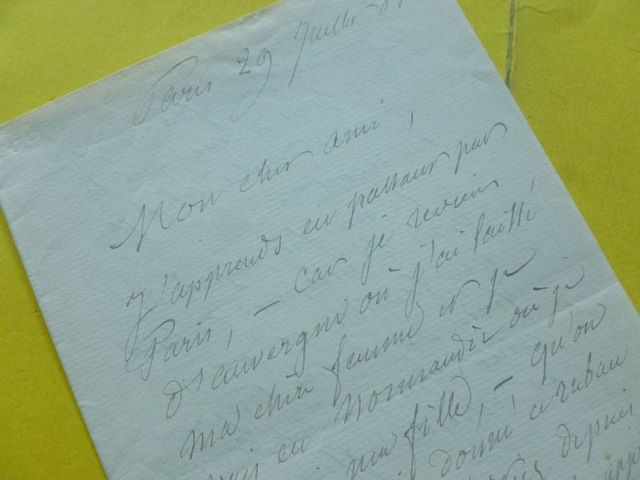 Paris 29 Juillet
Mon cher ami,
J'apprends en passant par
Paris, — car je reviens
d'auvergne où j'ai laissé
ma chère femme et je
vais en Normandie où j'ai
ma fille, — qu'on
donné ce ruban
depuis